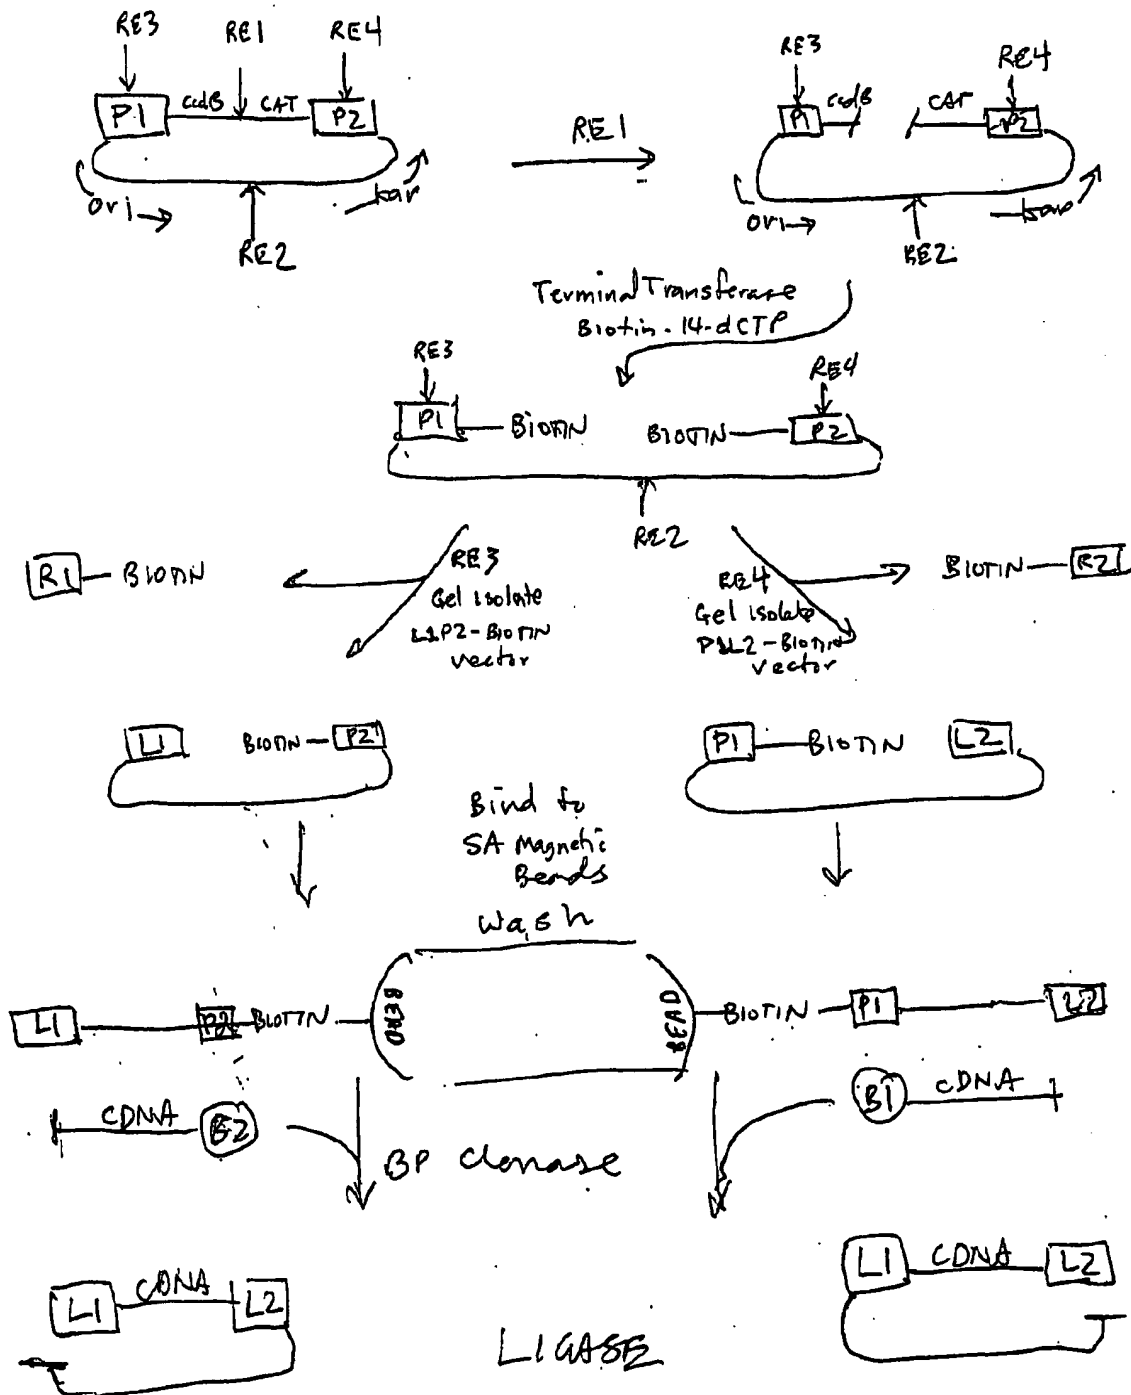 RE3 RE1 RE4
P1 ccdB CAT P2
ori kar
RE2
RE1
RE3 RE4
P1 ccdB CAT P2
ori
RE2
Terminal Transferase
Biotin-14-dCTP
RE3 RE4
P1 BIOTIN BIOTIN P2
RE2
R1 BIOTIN
RE3
Gel isolate
L1P2-BIOTIN
vector
RE4
Gel isolate
P1L2-BIOTIN
vector
BIOTIN R2
L1 BIOTIN P2
P1 BIOTIN L2
Bind to
SA Magnetic
Beads
Wash
L1 P2 BIOTIN BEAD
BIOTIN P1 L2
CDNA B2
B1 CDNA
BP Clonase
L1 CDNA L2
L1 CDNA L2
LIGASE